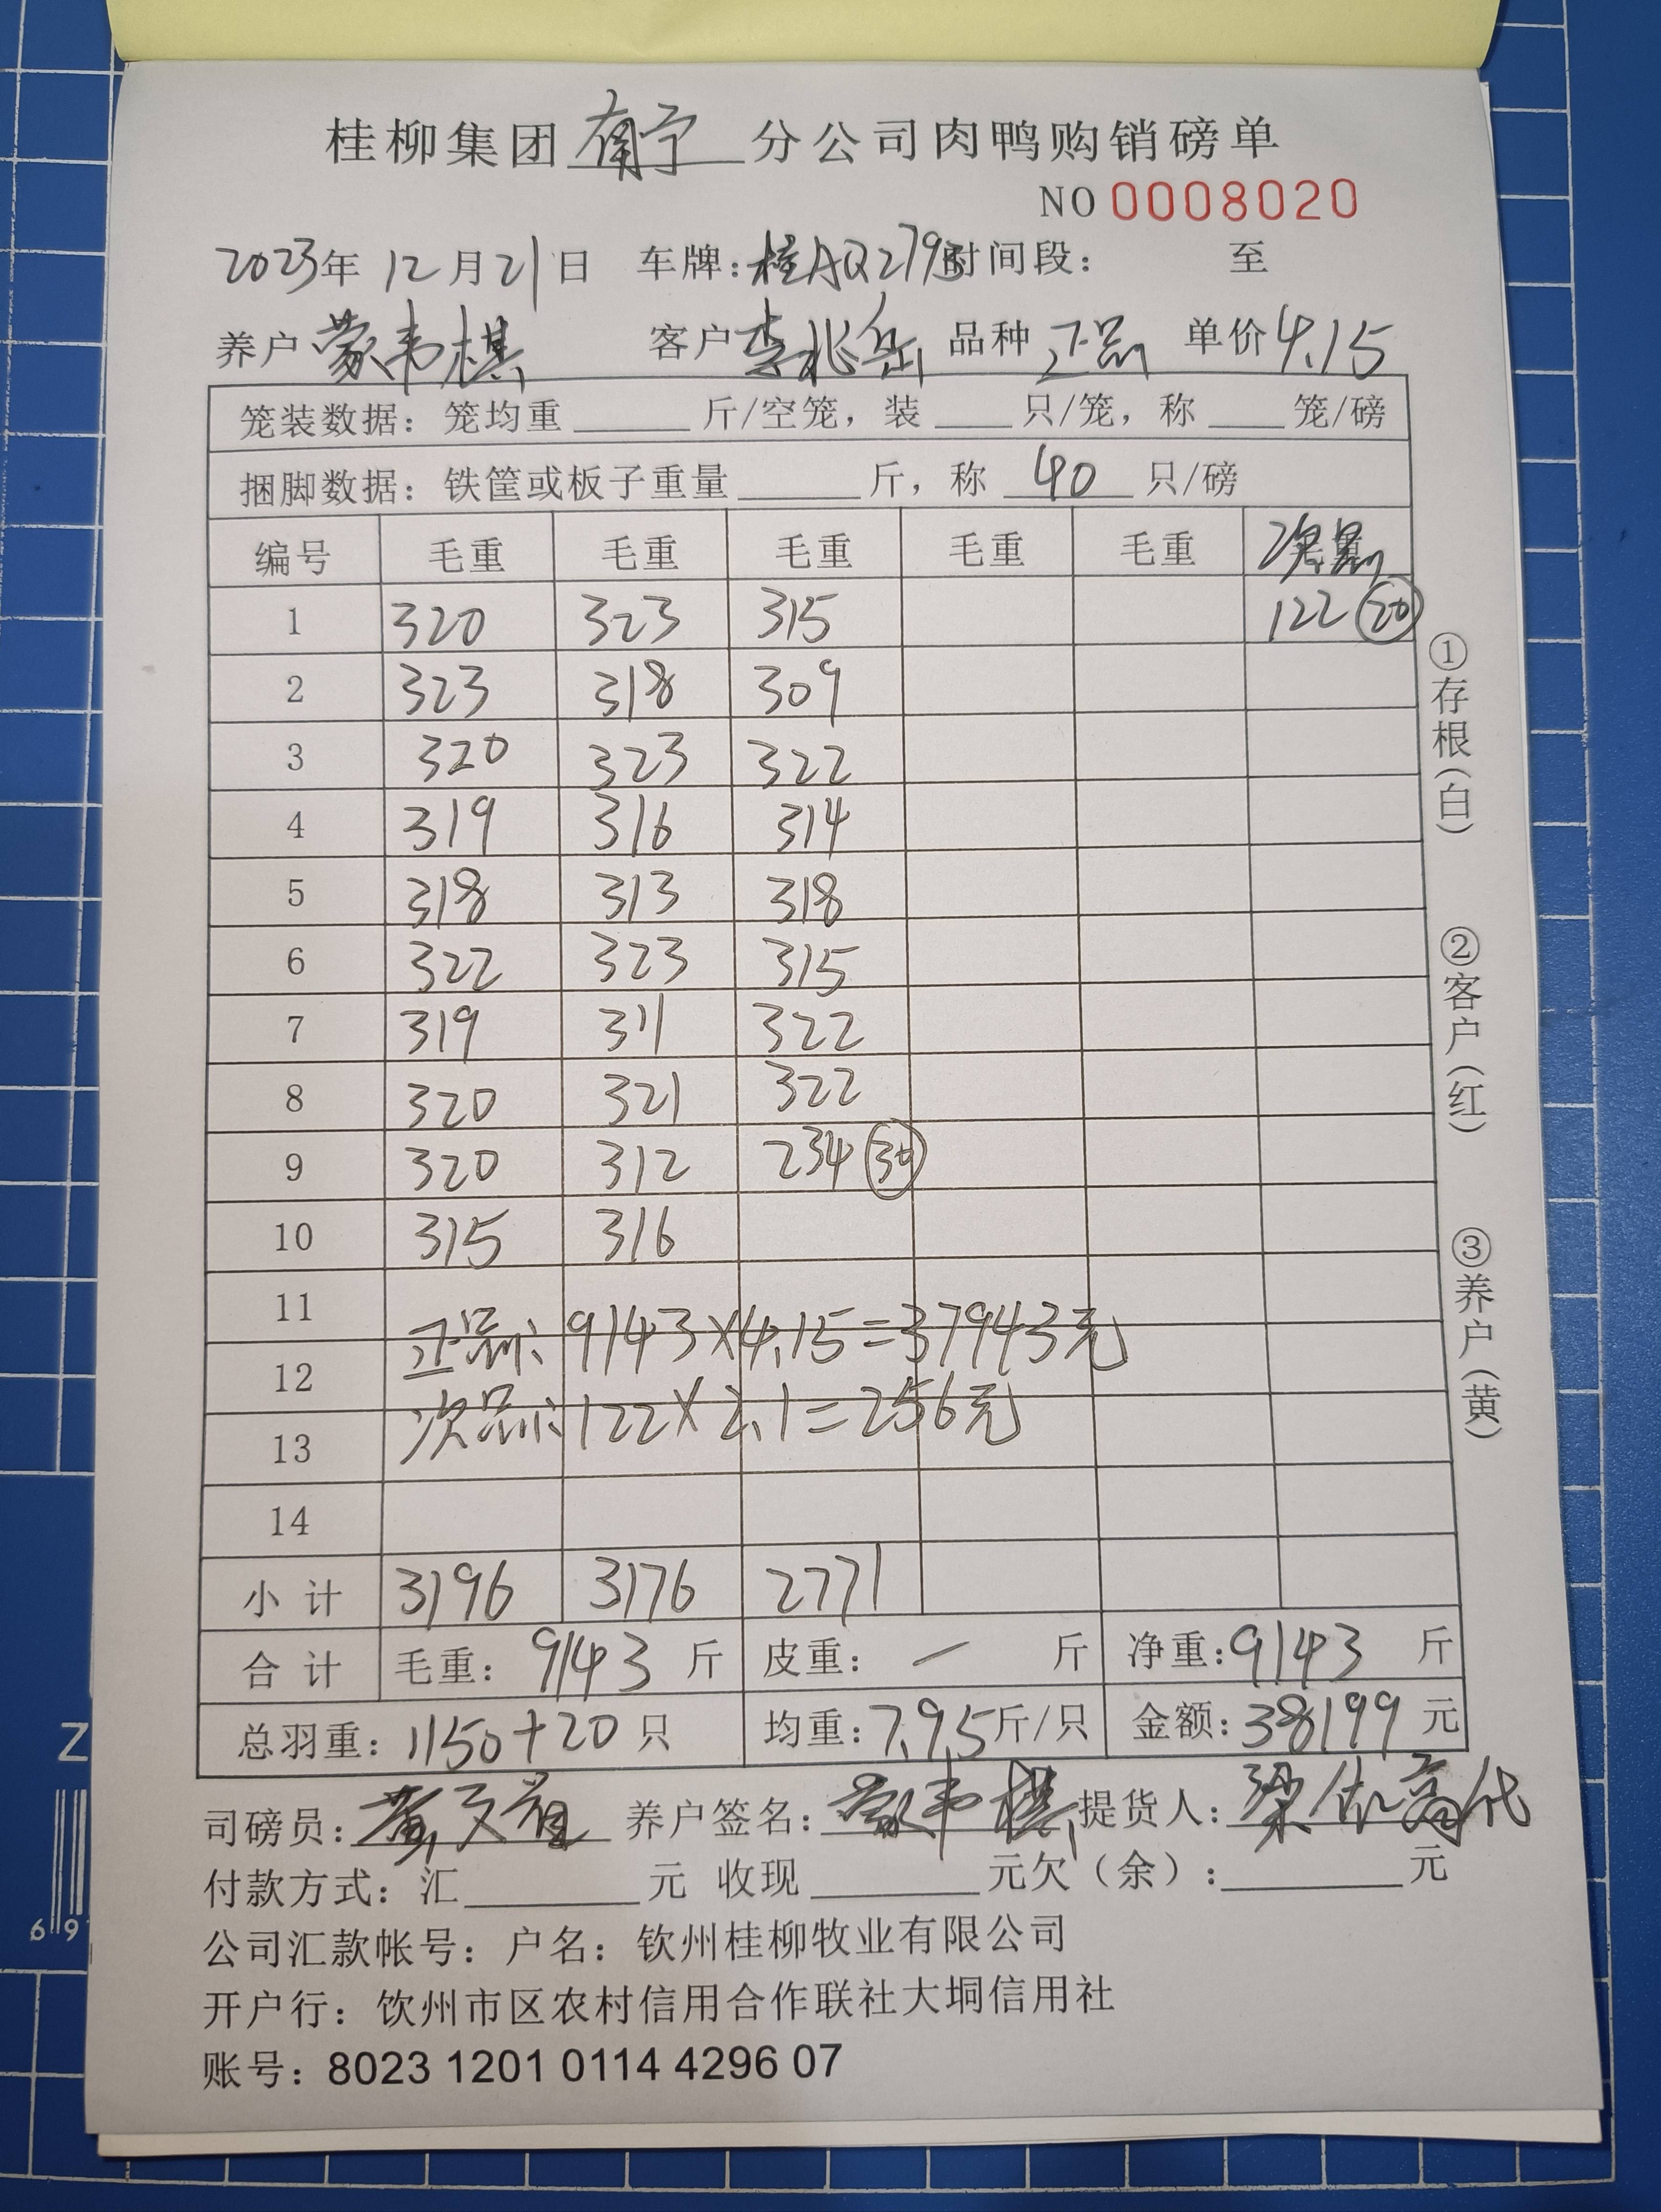 桂柳集团南宁分公司肉鸭购销磅单
NO 0008020
2023年12月21日 车牌:桂AQ279 时间段: 至
养户 蒙韦棋 客户 李兆岳 品种 正品 单价 4.15
笼装数据: 笼均重 斤/空笼, 装 只/笼, 称 笼/磅
捆脚数据: 铁筐或板子重量 斤, 称 40 只/磅
编号 毛重 毛重 毛重 毛重 毛重 次品
1 320 323 315 122 20
2 323 318 309
3 320 323 322
4 319 316 314
5 318 313 318
6 322 323 315
7 319 311 322
8 320 321 322
9 320 312 234 30
10 315 316
11 正品: 9143×4.15=37943元
12
13 次品: 122×2.1=256元
14
小计 3196 3176 2771
合计 毛重: 9143 斤 皮重: — 斤 净重: 9143 斤
总羽重: 1150+20 只 均重: 7.95 斤/只 金额: 38199 元
司磅员: 黄 养户签名: 蒙韦棋 提货人: 梁 代
付款方式: 汇 元 收现 元欠(余): 元
公司汇款帐号: 户名: 钦州桂柳牧业有限公司
开户行: 饮州市区农村信用合作联社大垌信用社
账号: 8023 1201 0114 4296 07
①存根(白)
②客户(红)
③养户(黄)
Z
69